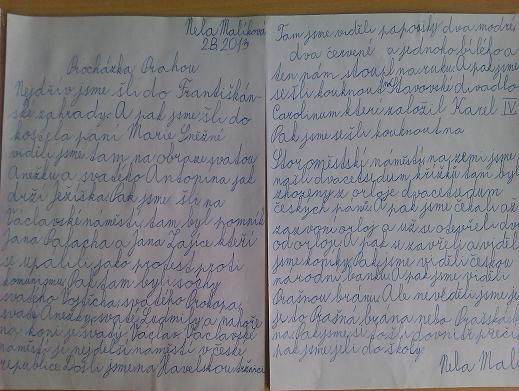 Nela Malíková
2.B. 2013
Procházka Prahou
Nejdřív jsme šli do Františkán-
ské zahrady. A pak jsme šli do
kostela paní Marie Sněžné
viděli jsme tam na obraze svatou
Anežku a svatého Antonína jak
drží ježíška. Pak jsme šli na
Václavské náměstí tam byl pomník
Jana Palacha a Jana Zajíce kteří
se upálili jako protest proti
komunizmu. Pak tam byli sochy
svatého Vojtěcha, svatého Prokopa,
svaté Anežky, svaté Ludmily a nahoře
na koni je svatý Václav. Václavské
náměstí je nejdelší náměstí v české
republice. Došli jsme na Havelskou tržnici
Tam jsme viděli papoušky dva modré
dva červené a jednoho bílého a
ten nám stoupl na ruku. A pak jsme
se šli kouknou na Stavovské divadlo
Carolinum které založil Karel IV.
Pak jsme se šli kouknout na
Staroměstský náměstí na zemi jsme
našli dvacet sedum křížků tam byli
z orloje dvacet sedum
českých pánů. A pak jsme čekali až
zazvoní orloj a už se otevřeli dvířka
od orloje. A pak se zavřeli a viděli
jsme Pak jsme viděli českou
národní banku. A pak jsme viděli
Prašnou bránu. Ale nevěděli jsme jestli
je to Prašná brána nebo Prašská brá-
na. Pak jsme si to
pak jsme jeli do školy.
Nela Mal